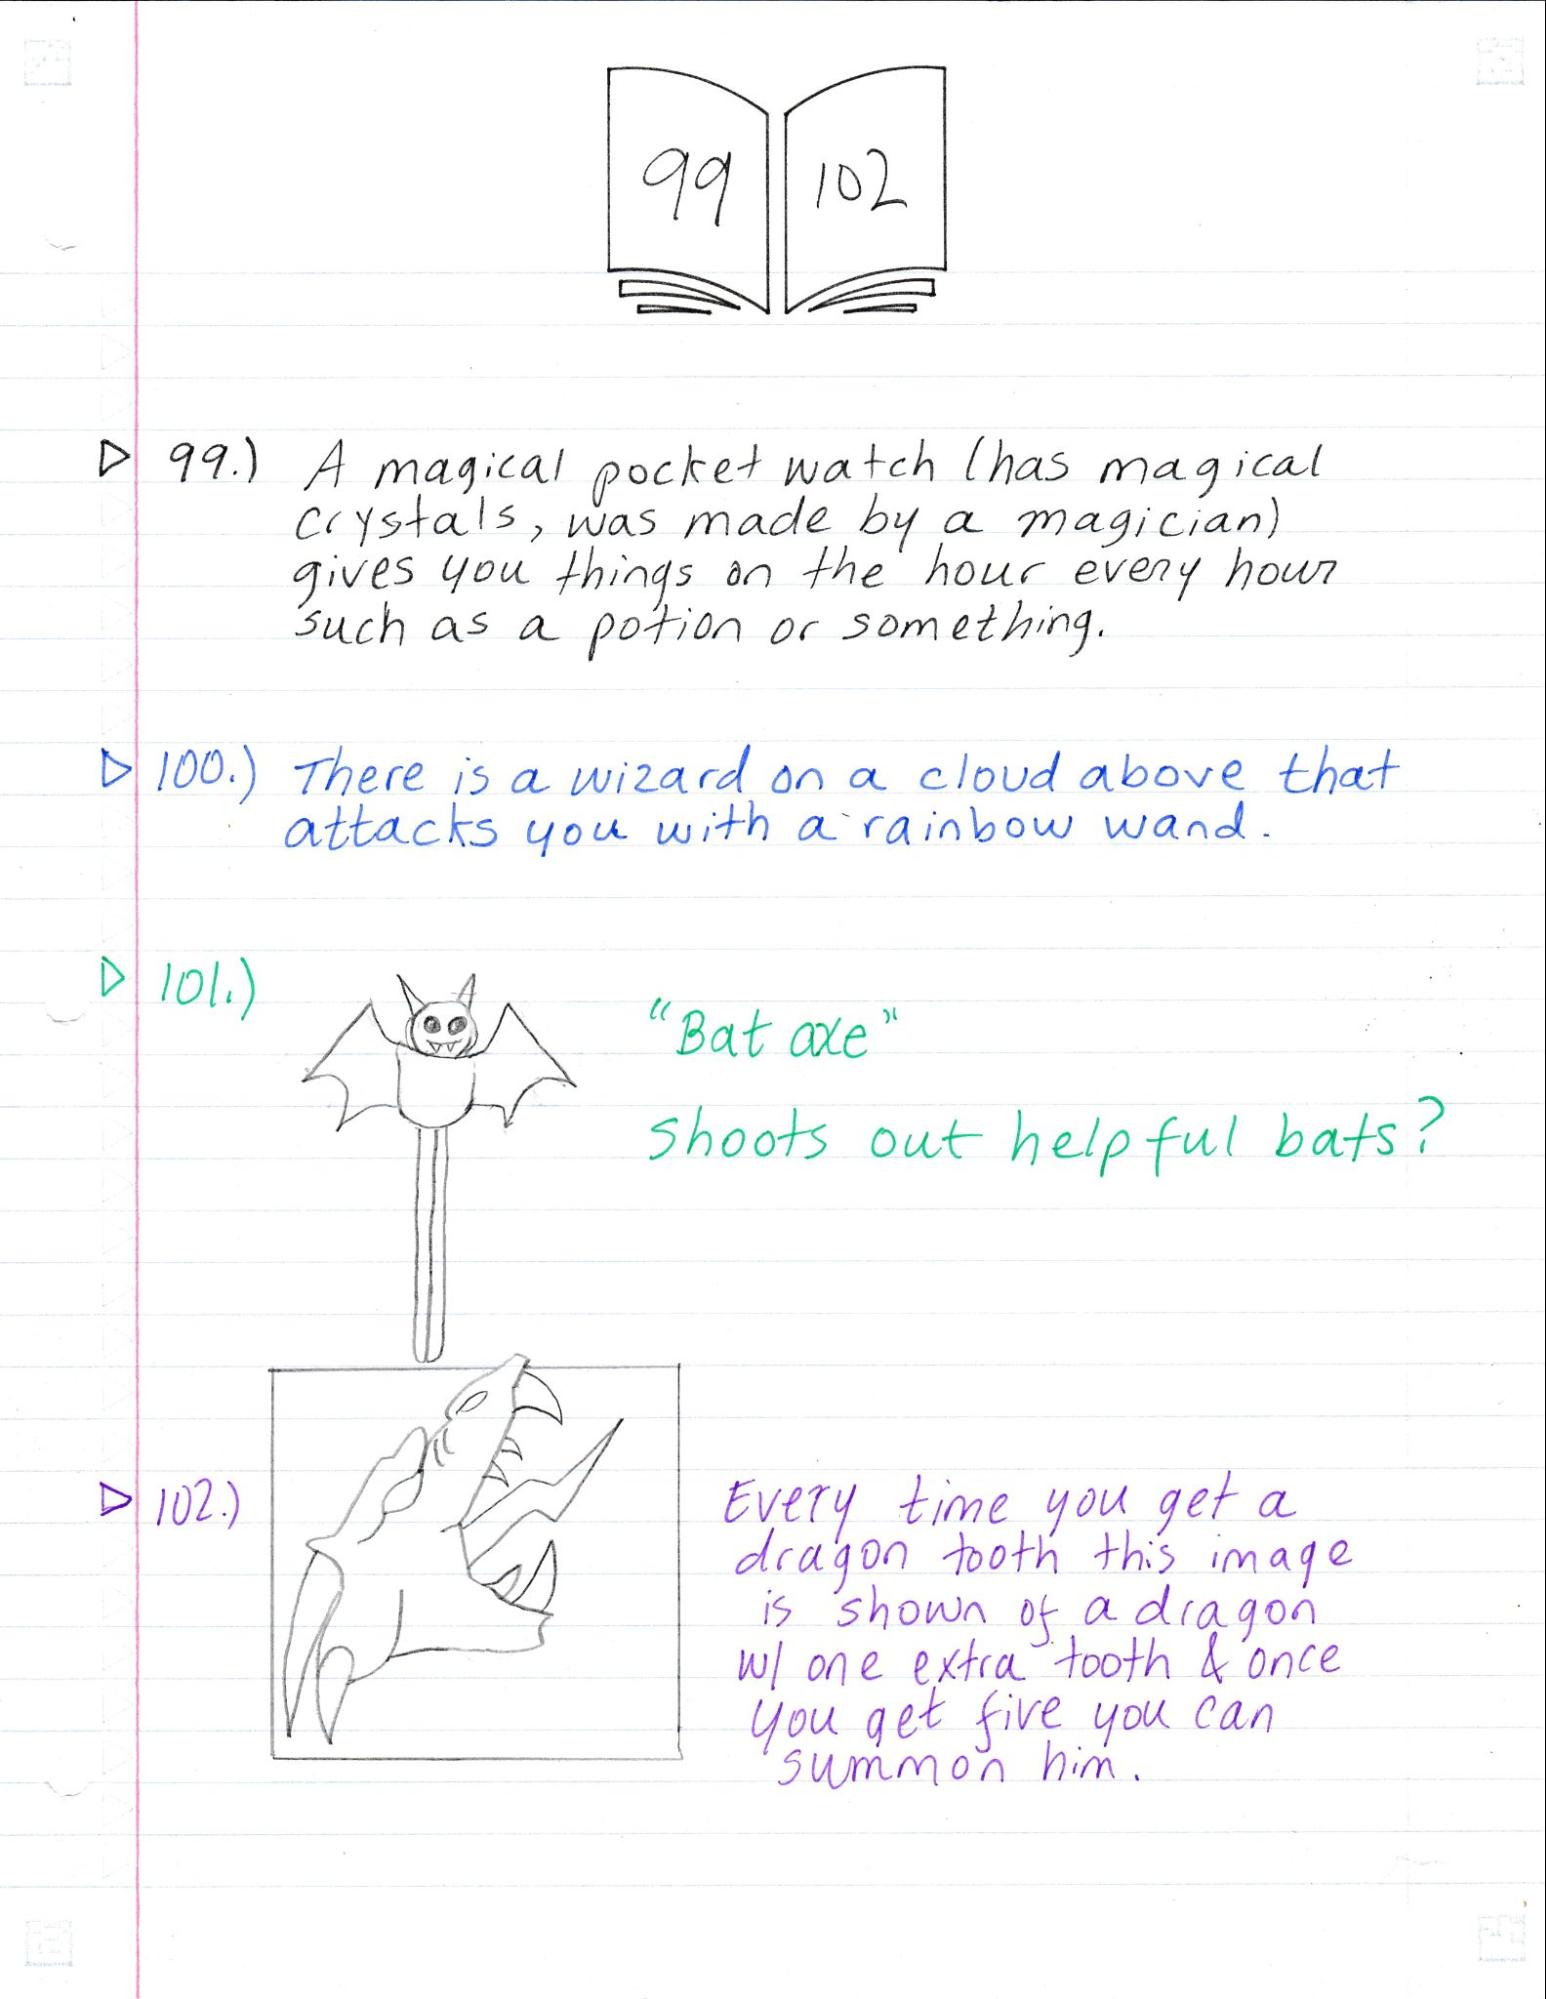 99 102
▷ 99.) A magical pocket watch (has magical
crystals, was made by a magician)
gives you things on the hour every hour
such as a potion or something.
▷ 100.) There is a wizard on a cloud above that
attacks you with a rainbow wand.
▷ 101.)
"Bat axe"
shoots out helpful bats?
▷ 102.)
Every time you get a
dragon tooth this image
is shown of a dragon
w/ one extra tooth & once
you get five you can
summon him.